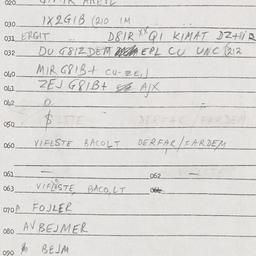 020
030 1X2GIB (210 1M
031 ERGIT D81R QI KIMAT
032 DU G81ZDEM EPL CU UNC (212
040 MIR G81B+ CU-ZEJ
041 ZEJ G81B+ AJX
042 O
$
050
060 VIFLSTE BACOLT DERFAR/FARDEM
061 — 062 —
063 VIFLSTE, BACOLT 064
070A FOJLER
080 AV BEJMER
090 BEJM